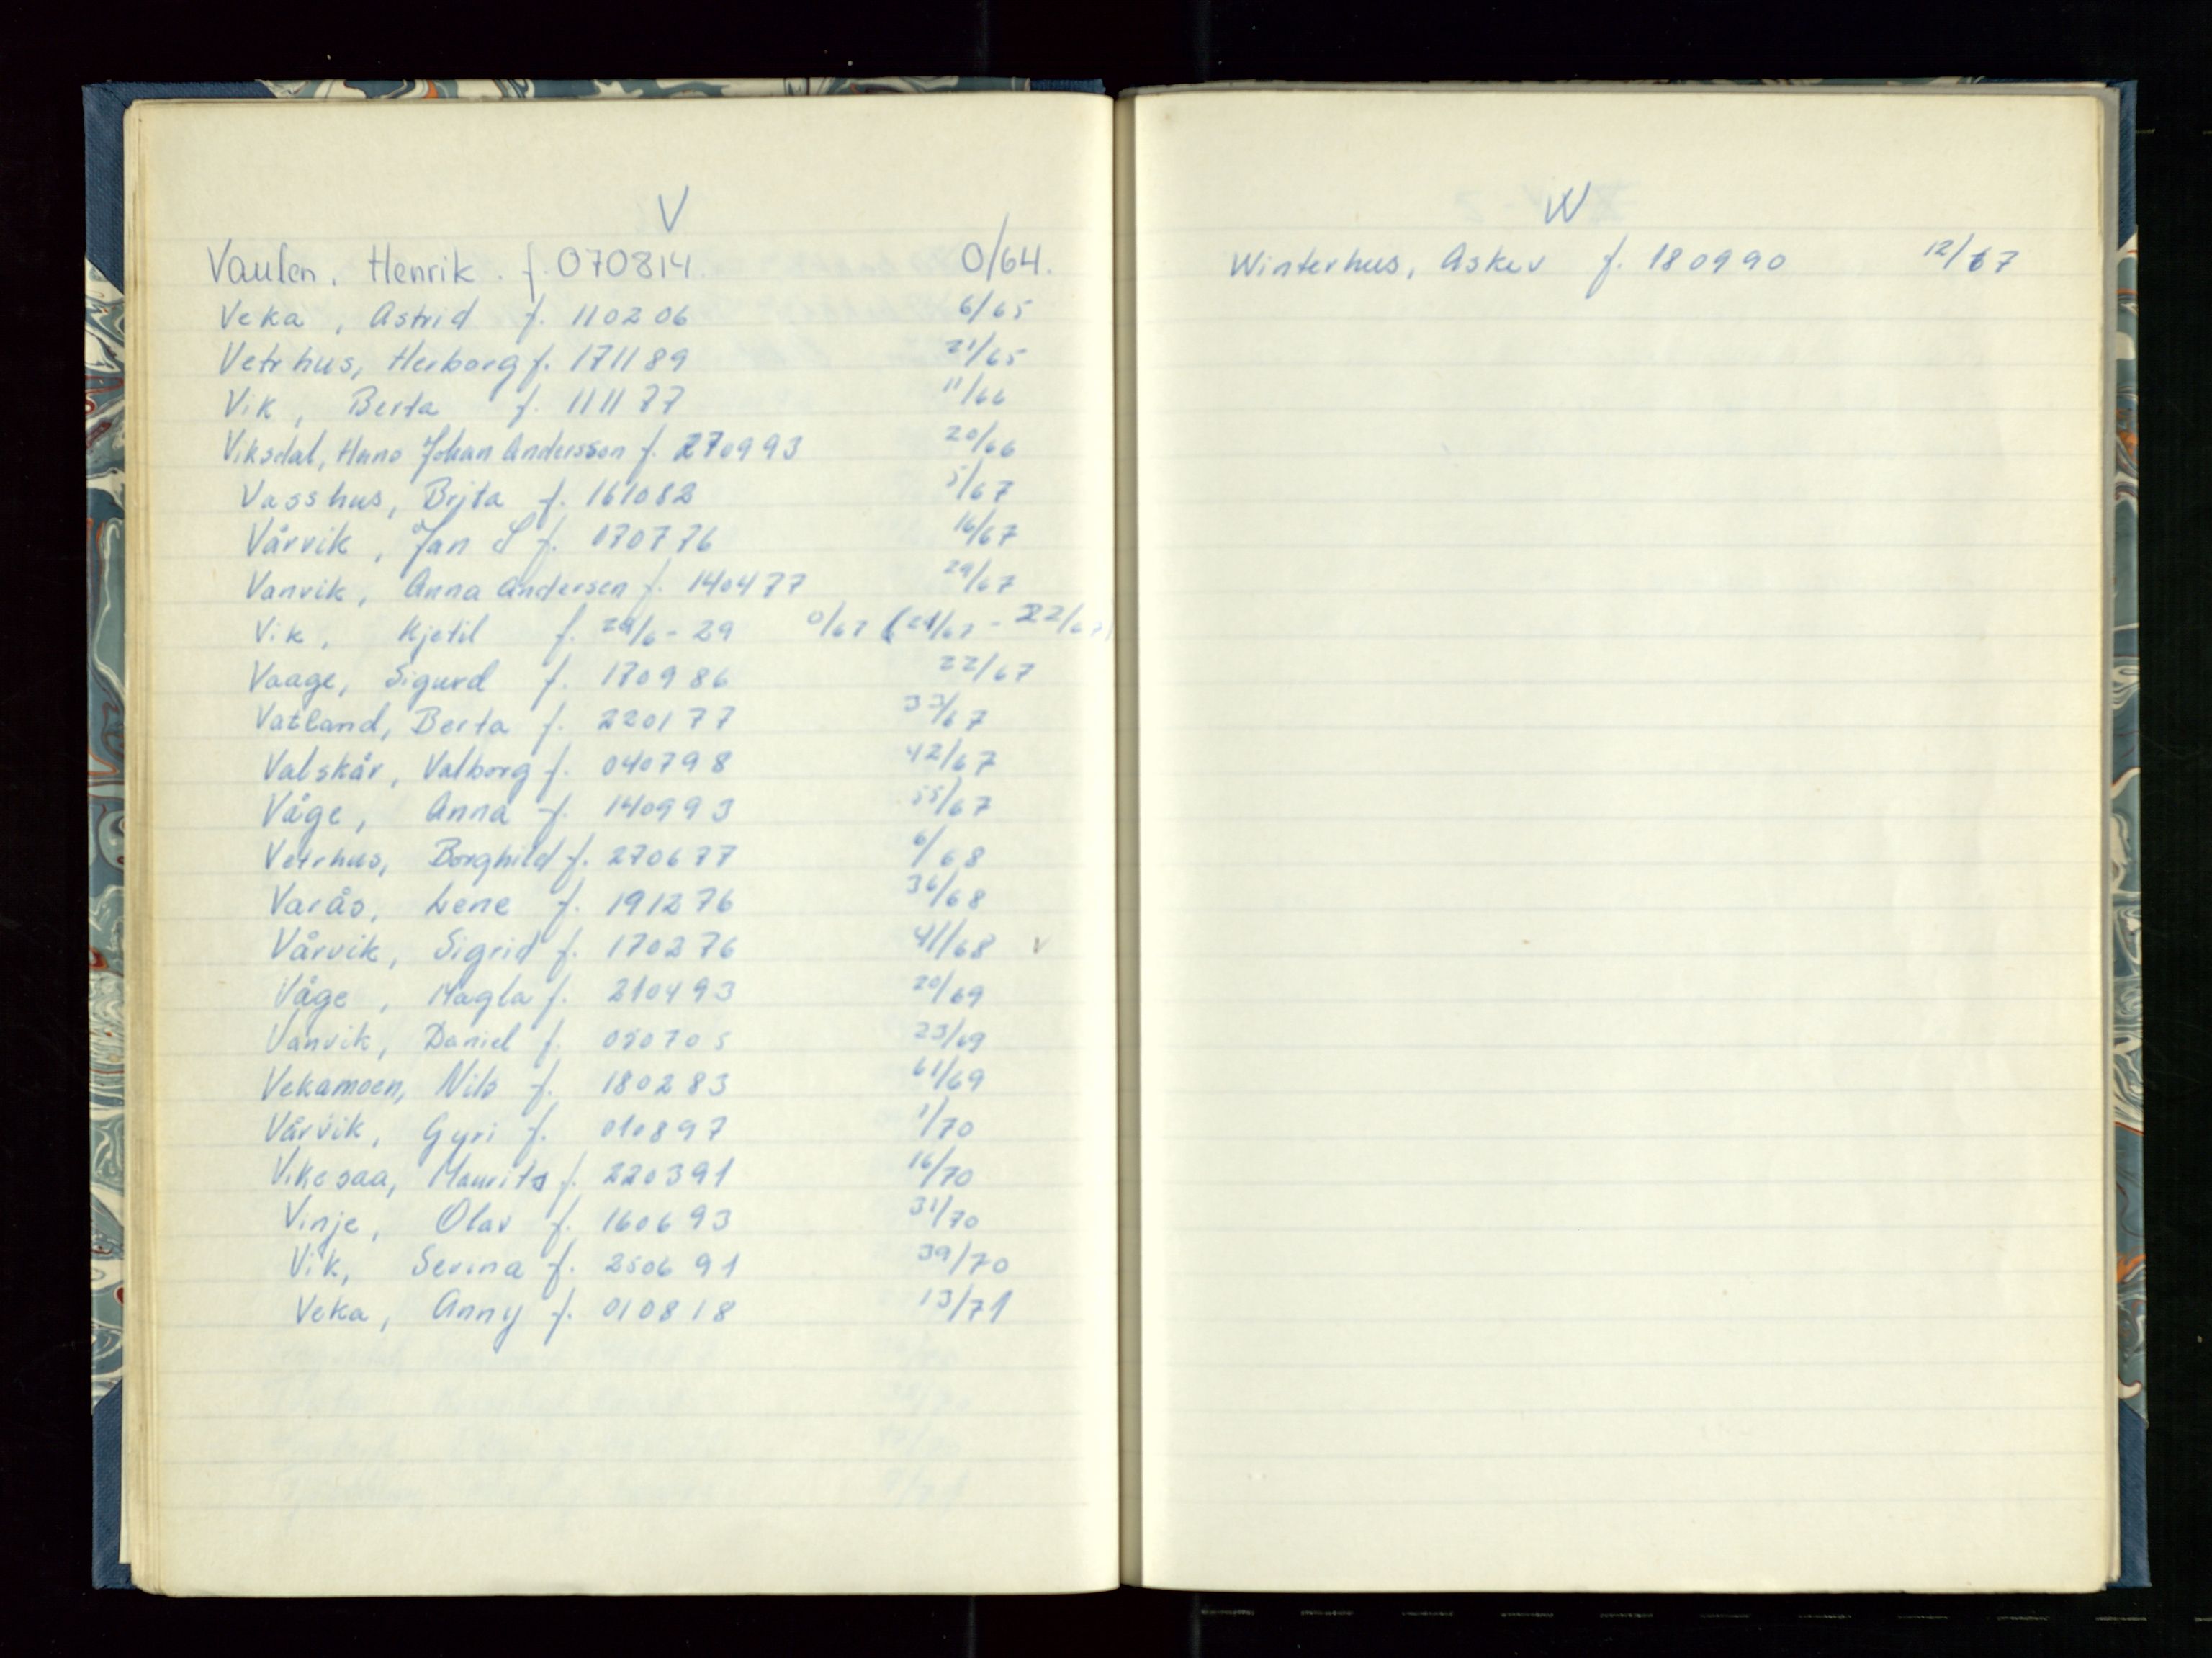 V
Vaulen, Henrik. f. 070814. 0/64.
Veka, Astrid f. 110206 6/65
Vetrhus, Herborg f. 171189 21/65
Vik, Berta f. 111177 11/66
Viksdal, Hans Johan Andersson f. 270993 20/66
Vasshus, Brita f. 161082 5/67
Vårvik, Jan S f. 070776 16/67
Vanvik, Anna Andersen f. 140477 29/67
Vik, Kjetil f. 24/6-29 0/67 (21/67 - 22/67)
Vaage, Sigurd f. 170986 22/67
Vatland, Berta f. 220177 33/67
Valskår, Valborg f. 040798 42/67
Våge, Anna f. 140993 55/67
Vetrhus, Borghild f. 270677 6/68
Varås, Lene f. 191276 36/68
Vårvik, Sigrid f. 170276 41/68 v
Våge, Magla f. 210493 20/69
Vanvik, Daniel f. 050705 23/69
Vekamoen, Nils f. 180283 61/69
Vårvik, Gyri f. 010897 1/70
Vikesaa, Maurits f. 220391 16/70
Vinje, Olav f. 160693 31/70
Vik, Serina f. 250691 39/70
Veka, Anny f. 010818 13/71
W
Winterhus, Asker f. 180990 12/67